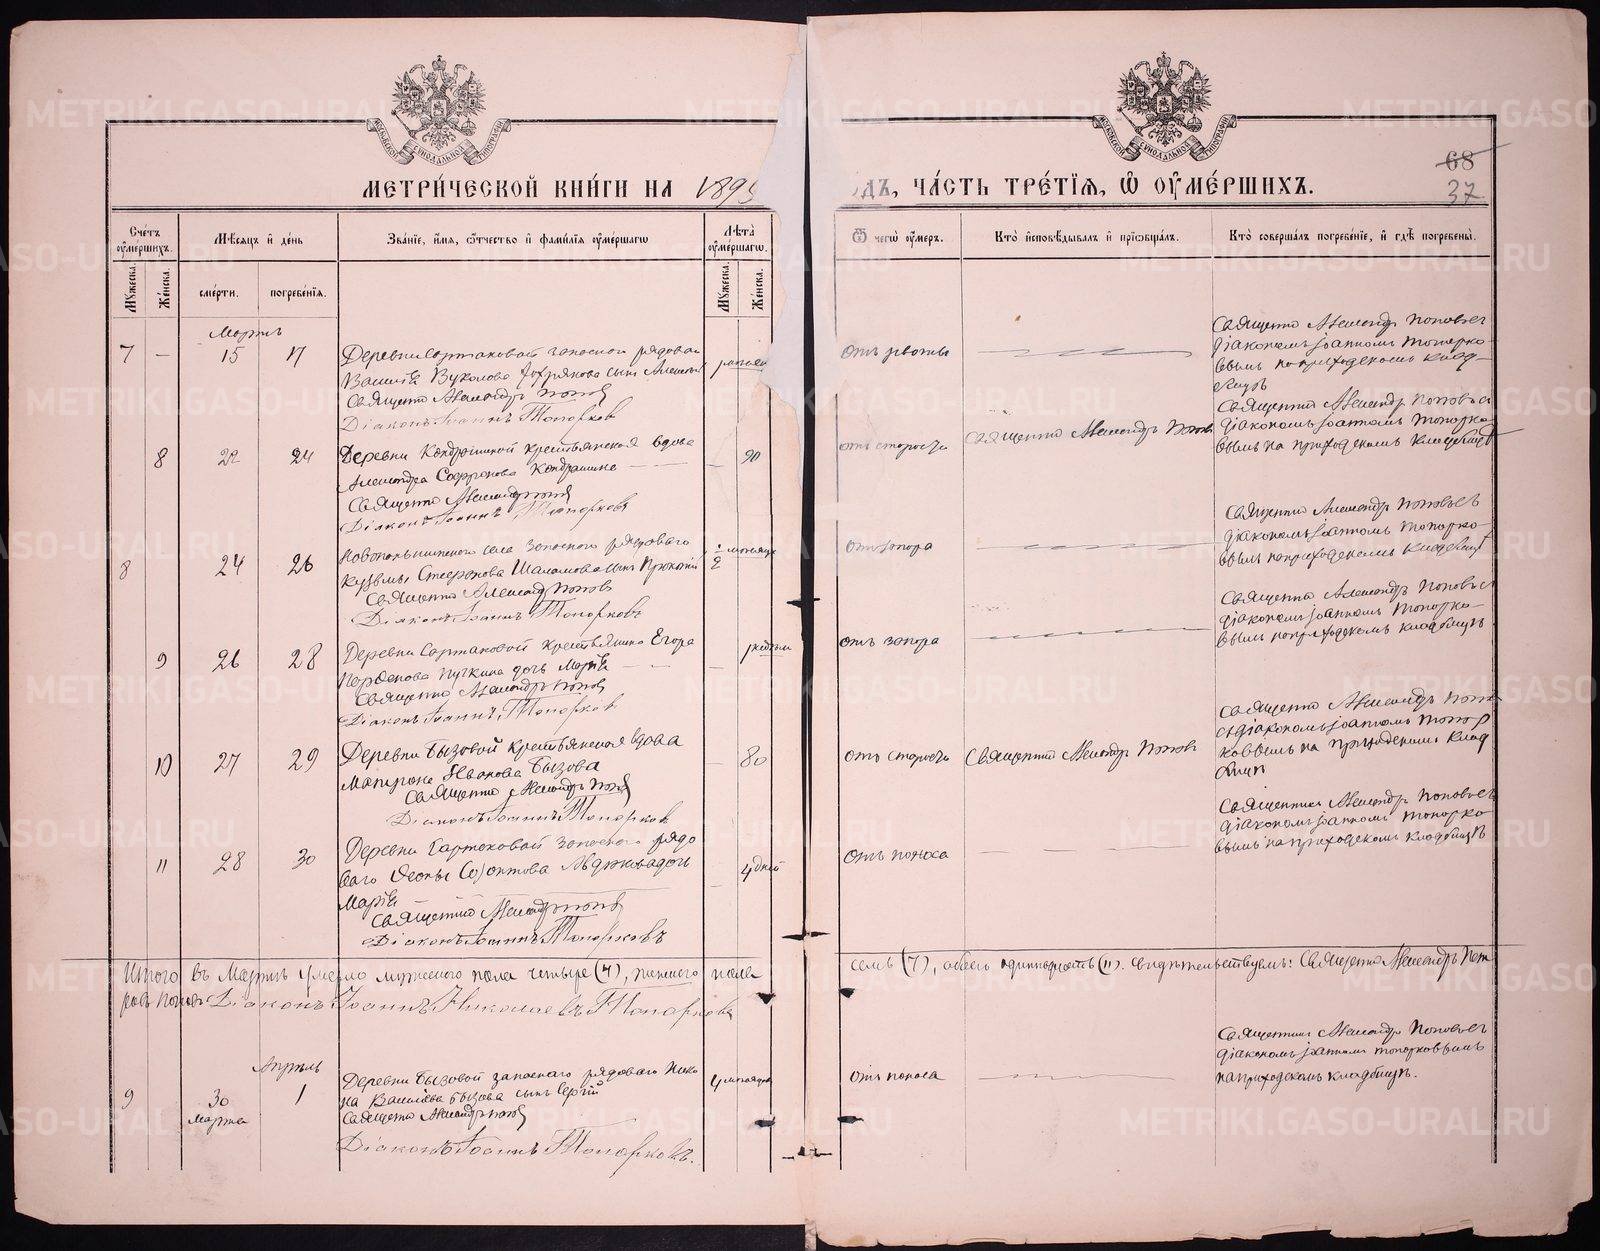 МОСКОВСКОЙ СѴНОДАЛЬНОЙ ТИПОГРАФІИ
МОСКОВСКОЙ СѴНОДАЛЬНОЙ ТИПОГРАФІИ
МЕТРИ́ЧЕСКОЙ КНИ́ГИ НА 1895
ДЪ, ЧА́СТЬ ТРЕ́ТІѦ, Ѡ҆ ОУ҆МЕ́РШИХЪ.
68
37
Сче́тъ оу҆ме́ршихъ.
Мѣ́сяцъ и҆ де́нь
Зва́нїе, и҆́мѧ, ѻ҆́тчество и҆ фами́лїѧ оу҆ме́ршагѡ
Лѣ́та оу҆ме́ршагѡ.
Ѿ чегѡ̀ оу҆́меръ.
Кто̀ и҆сповѣ́дывалъ и҆ прїѡбща́лъ.
Кто̀ соверша́лъ погребе́нїе, и҆ гдѣ̀ погребены̀.
Мꙋ́жеска.
Же́нска.
сме́рти.
погребе́нїѧ.
Мꙋ́жеска.
Же́нска.
Мартъ
7 — 15 17
Деревни Сартаковой запасного рядоваго
Василія Вуколова сынъ Алексѣй
Священникъ Александръ Поповъ
Діаконъ Іоаннъ Топорковъ
отъ рвоты
Священникъ Александръ Поповъ съ
діакономъ Іоанномъ Топорко-
вымъ на приходскомъ клад-
бищѣ
8 22 24
Деревни крестьянская вдова
Александра Софронова
Священникъ Александръ Поповъ
Діаконъ Іоаннъ Топорковъ
90
отъ старости
Священникъ Александръ Поповъ
Священникъ Александръ Поповъ съ
діакономъ Іоанномъ Топорко-
вымъ на приходскомъ кладбищѣ
8 24 26
села запасного рядоваго
Кузьмы сынъ Прокопій
Священникъ Александръ Поповъ
Діаконъ Іоаннъ Топорковъ
2 мѣсяца
отъ запора
Священникъ Александръ Поповъ съ
діакономъ Іоанномъ Топорко-
вымъ на приходскомъ кладбищѣ
9 26 28
Деревни Сартаковой крестьянина Егора
дочь Марія
Священникъ Александръ Поповъ
Діаконъ Іоаннъ Топорковъ
отъ запора
Священникъ Александръ Поповъ съ
діакономъ Іоанномъ Топорко-
вымъ на приходскомъ кладбищѣ
10 27 29
Деревни Бызовой крестьянская вдова
Матрона Иванова Бызова
Священникъ Александръ Поповъ
Діаконъ Іоаннъ Топорковъ
80
отъ старости
Священникъ Александръ Поповъ
Священникъ Александръ Поповъ
съ діакономъ Іоанномъ Топор
ковымъ на приходскомъ клад
бищѣ
11 28 30
Деревни Сартаковой запасного рядо
ваго дочь
Марія
Священникъ Александръ Поповъ
Діаконъ Іоаннъ Топорковъ
4 дней
отъ поноса
Священникъ Александръ Поповъ съ
діакономъ Іоанномъ Топорко
вымъ на приходскомъ кладбищѣ
Итого въ Мартѣ умерло мужеского пола четыре (4), женского пола
семь (7), обоего одинадцать (11). Свидѣтельствуемъ: Священникъ Александръ Пет
ровъ Поповъ Діаконъ Іоаннъ Николаевъ Топорковъ
Апрѣль
9 30 Марта 1
Деревни Бызовой запасного рядоваго
Васильева Бызова сынъ Сергій
Священникъ Александръ Поповъ
Діаконъ Іоаннъ Топорковъ.
4 мѣсяца
отъ поноса
Священникъ Александръ Поповъ съ
діакономъ Іоанномъ Топорковымъ
на приходскомъ кладбищѣ.
METRIKI.GASO-URAL.RU